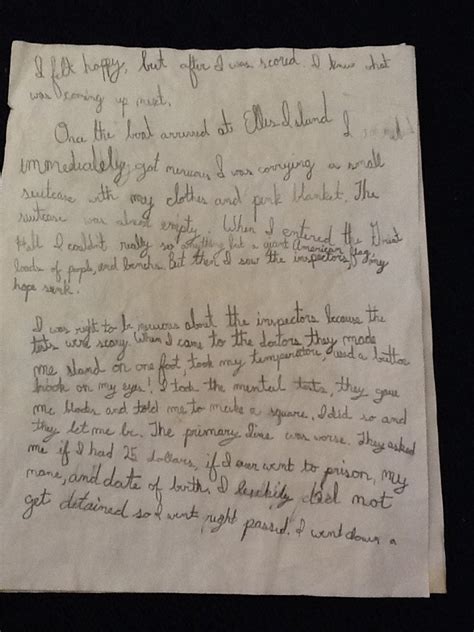 I felt happy, but after I was scared. I knew what
was coming up next.
Once the boat arrived at Ellis Island I
immediately got nervous I was carrying a small
suitcase with my clothes and pink blanket. The
suitcase was almost empty. When I entered the Great
Hall I couldn't really see anything but a giant American flag,
loads of people, and benchs. But then I saw the inspectors, my
hope sunk.
I was right to be nervous about the inspectors because the
tests were scary. When I came to the doctors they made
me stand on one foot, took my temperature, used a button
hook on my eyes! I took the mental tests, they gave
me blocks and told me to make a square, I did so and
they let me be. The primary line was worse. They asked
me if I had 25 dollars, if I ever went to prison, my
name, and date of birth. I did not
get detained so I went right passed. I went down a